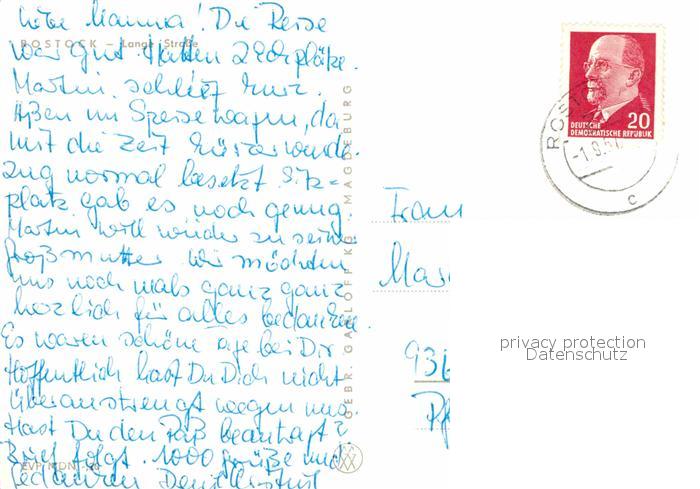 Liebe Mamma! Die Reise
ROSTOCK – Lange Straße
war gut. Hatten 2 Eckplätze.
Martin schlief kurz.
Aßen im Speisewagen, da
mit die Zeit kürzer wurde.
Zug normal besetzt Sitz-
platz gab es noch genug.
Martin will wieder zu seiner
Großmutter Wir möchten
uns noch mals ganz ganz
herzlich für alles bedanken.
Es waren schöne Tage bei Dir
Hoffentlich hast Du Dich nicht
überanstrengt wegen uns
Hast Du den Paß beantragt?
Brief folgt. 1000 Grüße und
GEBR. GARLOFF KG MAGDEBURG
20
DEUTSCHE
DEMOKRATISCHE REPUBLIK
ROST
-1.8.
c
Frau
Mar
936
privacy protection
Datenschutz